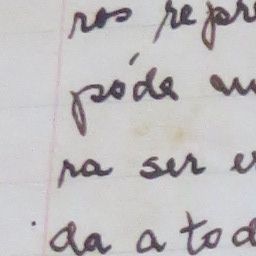 ros repre
póde
ra ser
da a tod